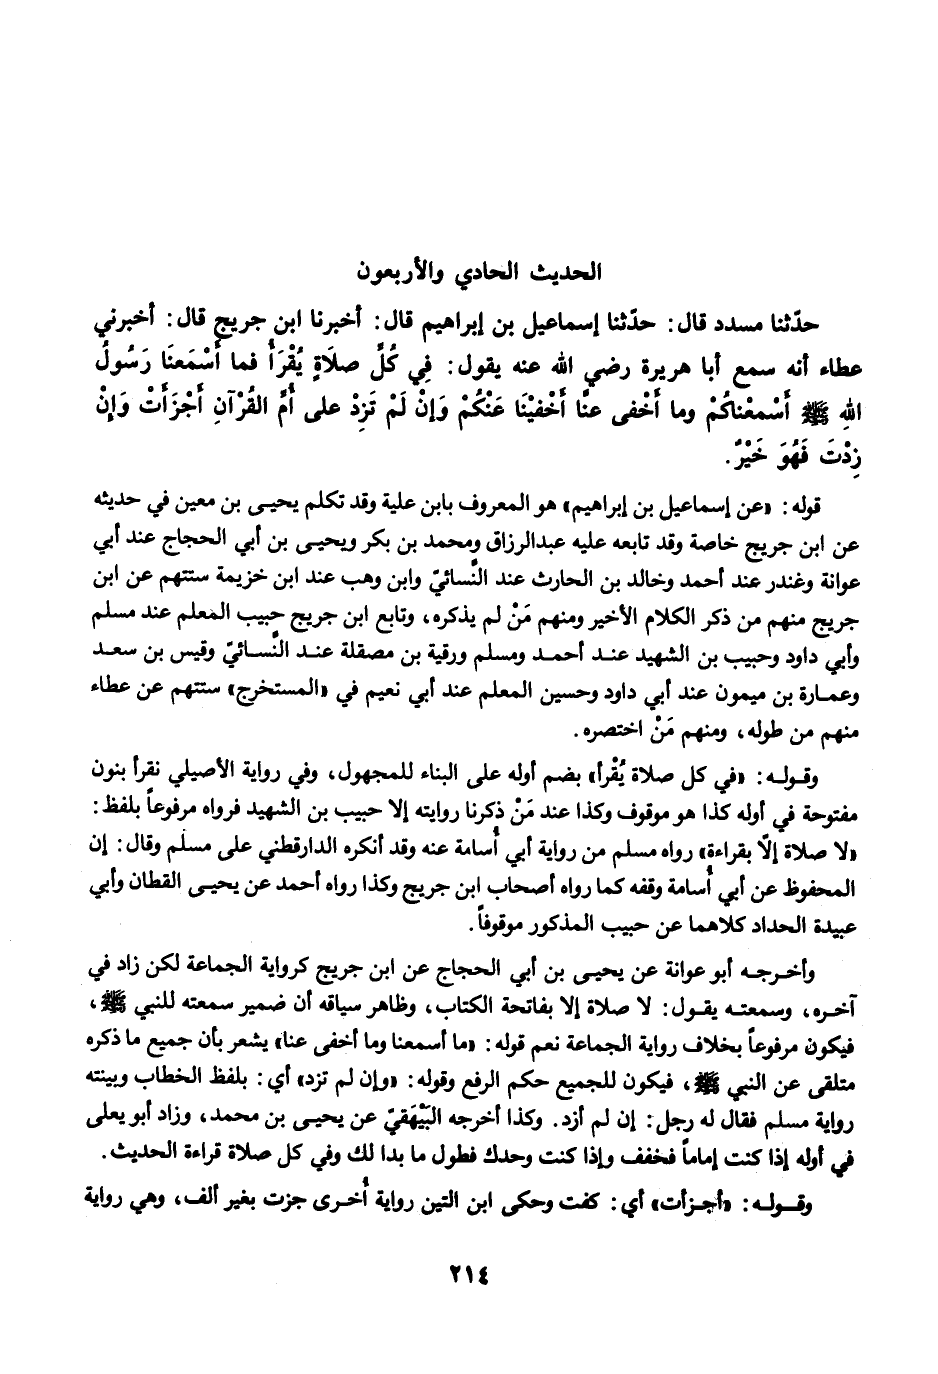 الحديث الحادي والأربعون
حدّثنا مسدد قال: حدّثنا إسماعيل بن إبراهيم قال: أخبرنا ابن جريج قال: أخبرني
عطاء أنه سمع أبا هريرة رضي الله عنه يقول: فِي كُلِّ صلَاةٍ يُقْرَأُ فما أَسْمَعَنَا رَسُولُ
اللهِ ﷺ أَسْمعْناكُمْ وما أَخْفى عنَّا أَخْفيْنَا عَنْكُمْ وَإنْ لَمْ تَزِدْ على أُمِّ القُرْآنِ أَجْزَأَتْ وَإِنْ
زِدْتَ فَهُوَ خَيْرٌ.
قوله: «عن إسماعيل بن إبراهيم» هو المعروف بابن علية وقد تكلم يحيى بن معين في حديثه
عن ابن جريج خاصة وقد تابعه عليه عبدالرزاق ومحمد بن بكر ويحيى بن أبي الحجاج عند أبي
عوانة وغندر عند أحمد وخالد بن الحارث عند النَّسائيّ وابن وهب عند ابن خزيمة ستتهم عن ابن
جريج منهم من ذكر الكلام الأخير ومنهم مَنْ لم يذكره، وتابع ابن جريج حبيب المعلم عند مسلم
وأبي داود وحبيب بن الشهيد عند أحمد ومسلم ورقية بن مصقلة عند النَّسائيّ وقيس بن سعد
وعمارة بن ميمون عند أبي داود وحسين المعلم عند أبي نعيم في «المستخرج» ستتهم عن عطاء
منهم من طوله، ومنهم مَنْ اختصره.
وقوله: «في كل صلاة يُقْرأ» بضم أوله على البناء للمجهول، وفي رواية الأصيلي نقرأ بنون
مفتوحة في أوله كذا هو موقوف وكذا عند مَنْ ذكرنا روايته إلا حبيب بن الشهيد فرواه مرفوعاً بلفظ:
«لا صلاة إلّا بقراءة» رواه مسلم من رواية أبي أُسامة عنه وقد أنكره الدارقطني على مسلم وقال: إن
المحفوظ عن أبي أُسامة وقفه كما رواه أصحاب ابن جريج وكذا رواه أحمد عن يحيى القطان وأبي
عبيدة الحداد كلاهما عن حبيب المذكور موقوفاً.
وأخرجه أبو عوانة عن يحيى بن أبي الحجاج عن ابن جريج كرواية الجماعة لكن زاد في
آخره، وسمعته يقول: لا صلاة إلا بفاتحة الكتاب، وظاهر سياقه أن ضمير سمعته للنبي ﷺ،
فيكون مرفوعاً بخلاف رواية الجماعة نعم قوله: «ما أسمعنا وما أخفى عنا» يشعر بأن جميع ما ذكره
متلقى عن النبي ﷺ، فيكون للجميع حكم الرفع وقوله: «وإن لم تزد» أي: بلفظ الخطاب وبينته
رواية مسلم فقال له رجل: إن لم أزد. وكذا أخرجه البَيْهَقيّ عن يحيى بن محمد، وزاد أبو يعلى
في أوله إذا كنت إماماً فخفف وإذا كنت وحدك فطول ما بدا لك وفي كل صلاة قراءة الحديث.
وقوله: «أجزأت» أي: كفت وحكى ابن التين رواية أُخرى جزت بغير ألف، وهي رواية
٢١٤